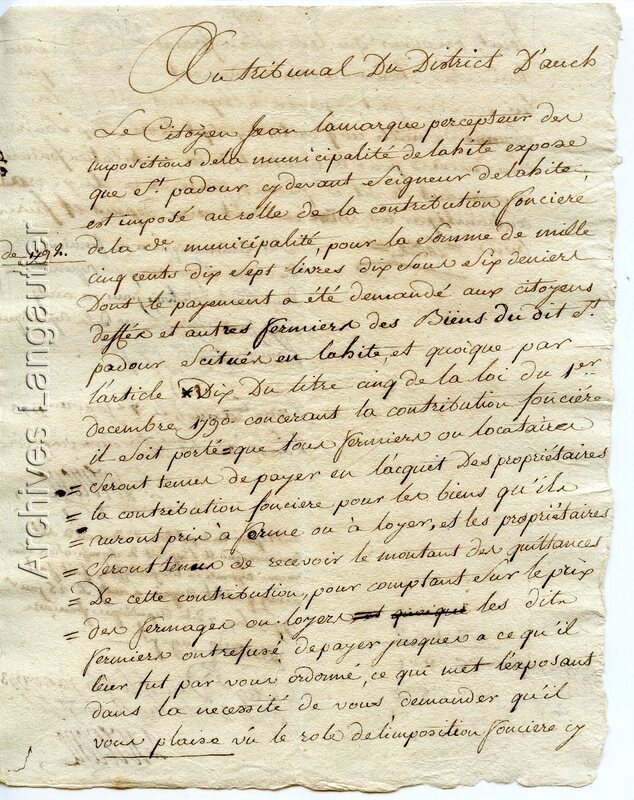 Au tribunal Du District D'auch
Le Citoyen Jean lamarque percepteur des
impositions dela municipalité de lahite expose
que Sr. padour cydevant Seigneur de lahite,
est imposé au rolle de la contribution fonciere
de la de. municipalité, pour la Somme de mille
de 1792.
cinq cents dix Sept livres dix Sous Six deniers
Dont le payement a été demandé aux citoyens
deffés et autres fermiers des Biens du dit Sr.
padour Scitués en lahite, et quoique par
l'article Dix Du titre cinq de la loi du 1er
decembre 1790 concerant la contribution fonciére
il Soit porté = que tous fermiers ou locataires
= Seront tenus de payer en l'acquit Des propriétaires
= la contribution fonciere pour les biens qu'ils
= auront pris à ferme ou à loyer, et les propriétaires
= Seront tenus de recevoir le montant des quittances
= De cette contribution, pour comptant Sur le prix
= des fermages ou loyers = et quoique les dits
fermiers ont refusé de payer jusques a ce qu'il
leur fut par vous ordonné, ce qui met l'exposant
dans la necessité de vous demander qu'il
vous plaise vû le role de l'imposition fonciere cy
Archives Langautier